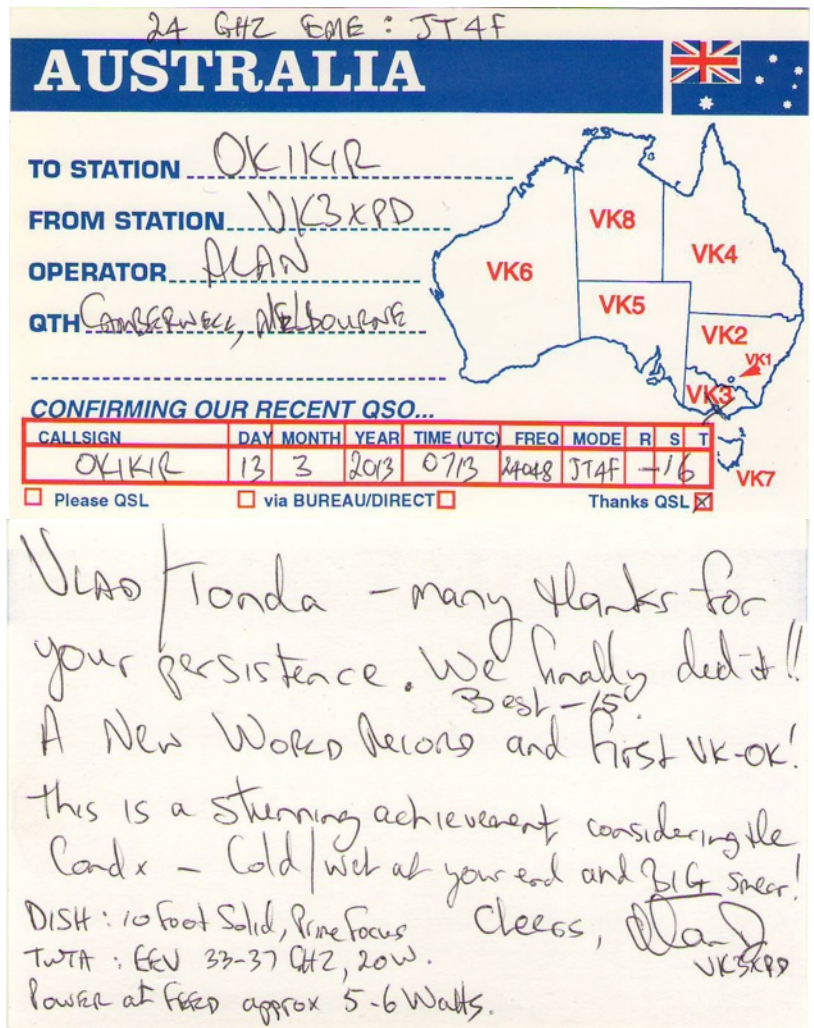 24 GHZ EME : JT4F
AUSTRALIA
TO STATION OK1KIR
FROM STATION VK3XPD
OPERATOR ALAN
QTH CAMBERWELL, MELBOURNE
VK8
VK6
VK4
VK5
VK2
VK1
VK3
VK7
CONFIRMING OUR RECENT QSO...
CALLSIGN DAY MONTH YEAR TIME (UTC) FREQ MODE R S T
OK1KIR 13 3 2013 0713 24048 JT4F -16
Please QSL via BUREAU/DIRECT Thanks QSL
VLAD/Tonda - many thanks for
your persistence. We finally did it!!
Best -15
A New WORLD RECORD and first VK-OK!
This is a stunning achievement considering the
Condx - Cold/wet at your end and BIG smear!
DISH : 10 Foot Solid, Prime Focus
Cheers, Alan
TWTA : EEV 33-37 GHZ, 20W.
VK3XPD
Power at FEED approx 5-6 Watts.